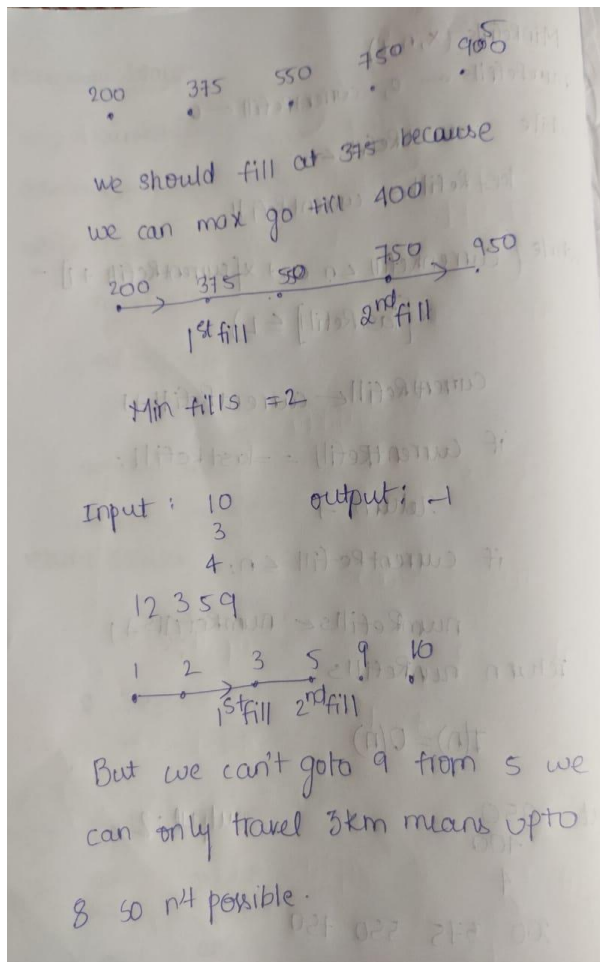 200 375 550 750 950
we should fill at 375 because
we can max go till 400
200 375 550 750 950
1st fill 2nd fill
Min fills = 2
Input : 10 output : -1
3
4
1 2 3 5 9
1 2 3 5 9 10
1st fill 2nd fill
But we can't goto 9 from 5 we
can only travel 3km means upto
8 so n4 possible.